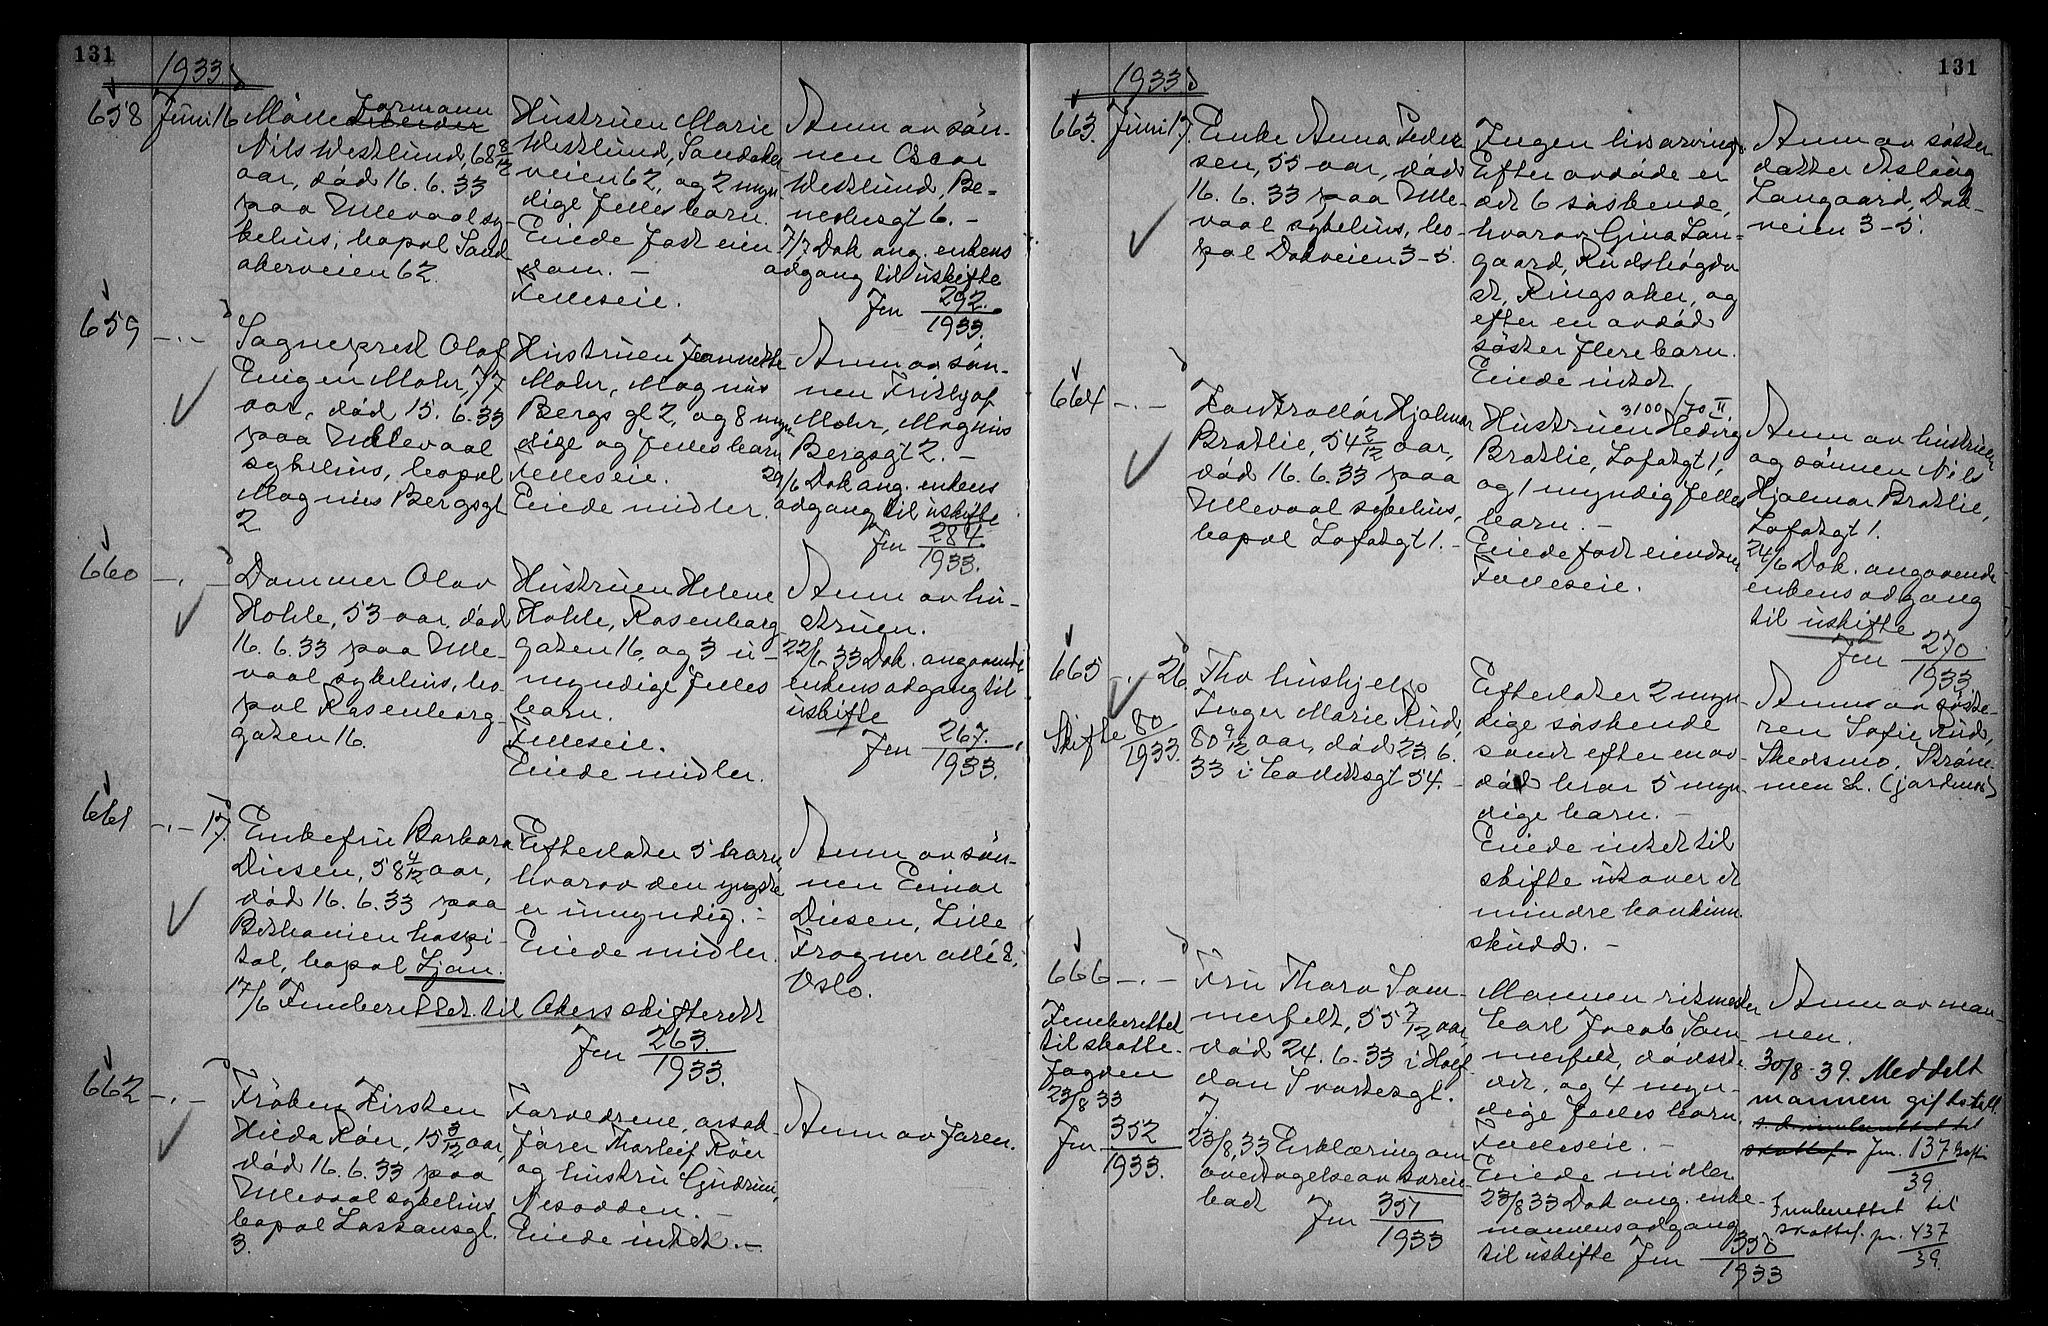 131
1933.
658 Juni 16 Maleformann
Nils Westlund, 68 8/12
aar, död 16. 6. 33
paa Ullevaal sy-
kehus, bopæl Sand
akerveien 62.
Hustruen Marie
Westlund, Sandaker
veien 62, og 2 myn
dige fellesbarn.
Eiede fast eien
dom. -
Felleseie.
Anm av søn-
nen Oscar
Westlund, Be-
7/7 Dok ang. enkens
adgang til uskifte
Jnr 292.
1933.
659 -.-
Sogneprest Olaf
Mohr, 77
aar, død 15. 6. 33
paa Ullevaal
sykehus, bopæl
Magnus Bergsgt
2
Hustruen Jeannette
Mohr, Magnus
Bergs gt 2, og 8 myn
dige og fellesbarn
Felleseie.
Eiede midler.
Anm av søn-
nen Fritjof
Mohr, Magnus
Bergsgt 2. -
29/6 Dok ang. enkens
adgang til uskifte
Jnr 284.
1933.
660 -.-
Olav
Hohle, 53 aar, død
16. 6. 33 paa Ulle-
vaal sykehus, bo-
pæl Rosenborg-
gaten 16.
Hustruen Helene
Hohle, Rosenborg-
gaten 16, og 3 u-
myndige felles
barn.
Felleseie.
Eiede midler.
Anm av hu-
struen.
22/6 33 Dok. angaaende
enkens adgang til
uskifte
Jnr 267.
1933.
661 -.- 17.
Enkefru Barbara
Diesen, 58 4/12 aar,
død 16. 6. 33 paa
Bethanien hospi-
tal, bopæl Ljan.
Efterlater 5 barn,
hvorav den yngste
er umyndig. -
Eiede midler.
Anm av søn-
nen Einar
Diesen, Lille
Frogner allé 8,
Oslo.
17/6 Innberettet til Akers skifterett
Jnr 263.
1933.
662 -.-
Frøken Kirsten
Røer, 15 3/12 aar,
død 16. 6. 33 paa
Ullevaal sykehus
bopæl Lassonsgt.
3.
Forældrene, ársak-
fører Thorleif Røer
og hustru Gudrun,
Nesodden. -
Eiede intet. -
Anm av faren.
131
1933.
663. Juni 17.
Enke Anna Peder
sen, 55 aar, død
16. 6. 33 paa Ulle-
vaal sykehus, bo-
pæl Dokveien 3-5.
Ingen livsarving.
Efter avdøde er
det 6 søskende,
hvorav Gina Lan-
gaard, Rudshøgda
st, Ringsaker, og
efter en avdød
søster flere barn.
Eiede intet
Anm av søster
datter Aslaug
Langaard, Dok-
veien 3-5.
664 -.-
Kontrollør Hjalmar
Bratlie, 54 2/12 aar,
død 16. 6. 33 paa
Ullevaal sykehus,
bopæl Lofotgt 1. -
3100/70 II
Hustruen Hedvig
Bratlie, Lofotgt 1,
og 1 myndig felles
barn. -
Eiede fast eiendom
Felleseie.
Anm av hustruen
og sønnen Nils
Hjalmar Bratlie,
Lofotgt 1.
24/6 Dok. angaaende
enkens adgang
til uskifte
Jnr 270.
1933.
665 -.- 26.
Skifte 80
1933.
Fhv hushjelp
Inger Marie Rud,
80 9/12 aar, død 23. 6.
33 i Cadettsgt 54. -
Efterlater 2 myn-
dige søskende
samt efter en av-
død bror 5 myn-
dige barn. -
Eiede intet til
skifte utover et
mindre bankinn
skudd. -
Anm av søste-
ren Sofie Rud,
Skedsmo, Strøm-
men st. (jordmor)
666 -.-
Innberettet
til skatte-
fogden
23/8 33
Jnr 352
1933.
Fru Thora Som-
merfelt, 55 7/12 aar,
død 24. 6. 33 i Half-
dan Svartesgt.
7.
23/8. 33 Erklæring om
overtagelse av særeie
bad
Jnr 351
1933
Mannen ritmester
Carl Jacob Som-
merfelt, dødsste-
det, og 4 myn-
dige fellesbarn.
Felleseie -
Eiede midler
23/8 33 Dok ang. enke-
mannens adgang
til uskifte Jnr 350
1933
Anm av man-
nen.
30/8-39. Meddelt
mannen giftstill.
Jnr. 137
39.
Innberettet til
skattef. jnr. 437
39.